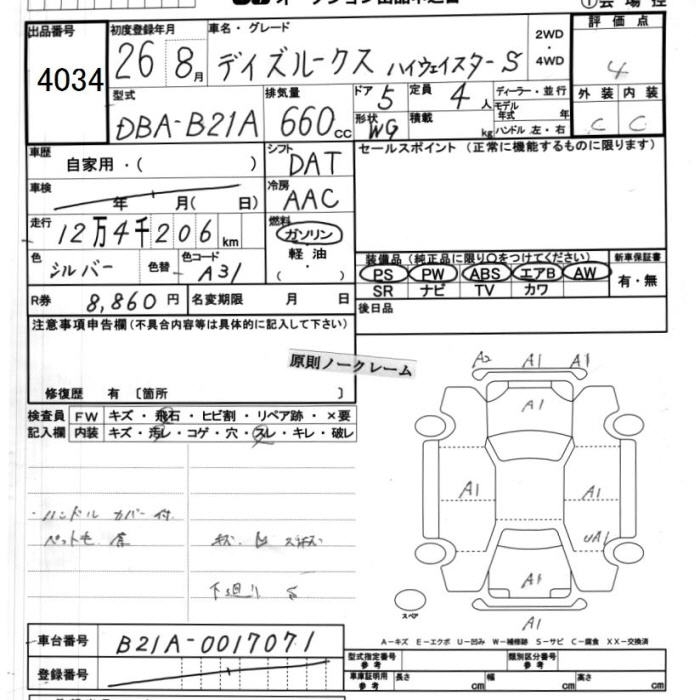 出品番号 4034
初度登録年月 26 8月
車名・グレード デイズルークス ハイウェイスターS
2WD・4WD
評価点 4
外装 内装
C C
型式 DBA-B21A
排気量 660cc
ドア 5 定員 4人
形状 WG 積載 kg
ディーラー・並行
モデル年式 年
ハンドル 左・右
車歴 自家用・( )
シフト DAT
セールスポイント (正常に機能するものに限ります)
車検 年 月( 日)
冷房 AAC
走行 12万4千206km
燃料 ガソリン
軽油
・( )
色 シルバー 色替 色コード A31
装備品 (純正品に限り○をつけてください)
PS PW ABS エアB AW
SR ナビ TV カワ
新車保証書
有・無
R券 8,860円 名変期限 月 日
後日品
注意事項申告欄(不具合内容等は具体的に記入して下さい)
原則ノークレーム
修復歴 有 〔箇所 〕
検査員 FW キズ・飛石・ヒビ割・リペア跡・×要
記入欄 内装 キズ・汚レ・コゲ・穴・スレ・キレ・破レ
A2 A1 A1
A1
A1 A1
UA1
A1
A1
・ハンドル カバー付
スペア
A-キズ E-エクボ U-凹み W-補修跡 S-サビ C-腐食 XX-交換済
車台番号 B21A-0017071
登録番号
型式指定番号 参考 類別区分番号 参考
車庫証明用 参考 長さ cm 幅 cm 高さ cm